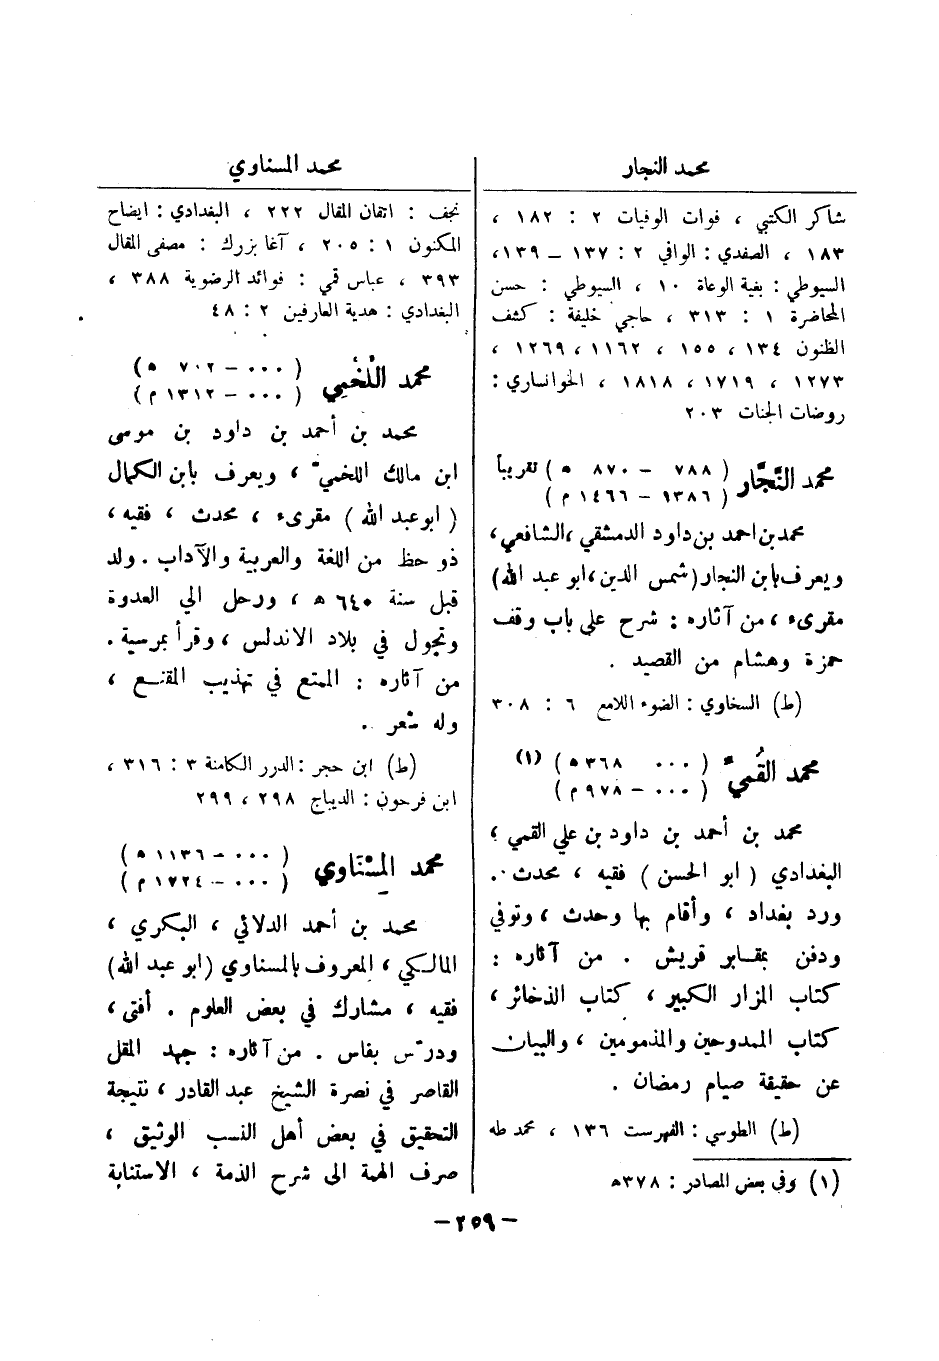 محمد النجار
شاكر الكتبي ، فوات الوفيات ٢ : ١٨٢ ،
١٨٣ ، الصفدي : الوافي ٢ : ١٣٧ – ١٣٩،
السيوطي : بغية الوعاة ١٠ ، السيوطي : حسن
المحاضرة ١ : ٣١٣ ، حاجي خليفة : كشف
الظنون ١٣٤ ، ١٥٥ ، ١١٦٢، ١٢٦٩ ،
١٢٧٣ ، ١٧١٩، ١٨١٨ ، الخوانساري :
روضات الجنات ٢٠٣
محمد النَّجَّار ( ٧٨٨ – ٨٧٠ ه ) تقريباً
( ١٣٨٦ – ١٤٦٦ م )
محمد بن احمد بن داود الدمشقي ، الشافعي ،
ويعرف بابن النجار (شمس الدين ، ابو عبد الله)
مقرىء ، من آثاره : شرح على باب وقف
حمزة وهشام من القصيد .
(ط) السخاوي : الضوء اللامع ٦ : ٣٠٨
محمد القُميّ ( ٠٠٠ ٣٦٨ ه ) (١)
( ٠٠٠ – ٩٧٨ م )
محمد بن أحمد بن داود بن علي القمي ،
البغدادي ( ابو الحسن ) فقيه ، محدث .
ورد بغداد ، وأقام بها وحدث ، وتوفي
ودفن بمقابر قريش . من آثاره :
كتاب المزار الكبير ، كتاب الذخائر ،
كتاب الممدوحين والمذمومين ، والبيان
عن حقيقة صيام رمضان .
(ط) الطوسي : الفهرست ١٣٦ ، محمد طه
(١) وفي بعض المصادر : ٣٧٨ ه
محمد المسناوي
نجف : اتقان المقال ٢٢٢ ، البغدادي : ايضاح
المكنون ١ : ٢٠٥ ، آغا بزرك : مصفى المقال
٣٩٣ ، عباس قمي : فوائد الرضوية ٣٨٨ ،
البغدادي : هدية العارفين ٢ : ٤٨
محمد اللَّخمِي ( ٠٠٠ – ٧٠٢ ه )
( ٠٠٠ – ١٣١٢ م )
محمد بن أحمد بن داود بن موسى
ابن مالك اللخميّ ، ويعرف بابن الكمال
( ابو عبد الله ) مقرىء ، محدث ، فقيه ،
ذو حظ من اللغة والعربية والآداب . ولد
قبل سنة ٦٤٠ ه ، ورحل الي العدوة
وتجول في بلاد الاندلس ، وقرأ بمرسية .
من آثاره : الممتع في تهذيب المقنع ،
وله شعر .
(ط) ابن حجر : الدرر الكامنة ٣ : ٣١٦ ،
ابن فرحون : الديباج ٢٩٨ ، ٢٩٩
محمد المِسْنَاوي ( ٠٠٠ – ١١٣٦ ه )
( ٠٠٠ – ١٧٢٤ م )
محمد بن أحمد الدلائي ، البكري ،
المالكي ، المعروف بالمسناوي (ابو عبد الله)
فقيه ، مشارك في بعض العلوم . أفتى ،
ودرّس بفاس . من آثاره : جهد المقل
القاصر في نصرة الشيخ عبد القادر ، نتيجة
التحقيق في بعض أهل النسب الوثيق ،
صرف الهمة الى شرح الذمة ، الاستنابة
– ٢٥٩ –